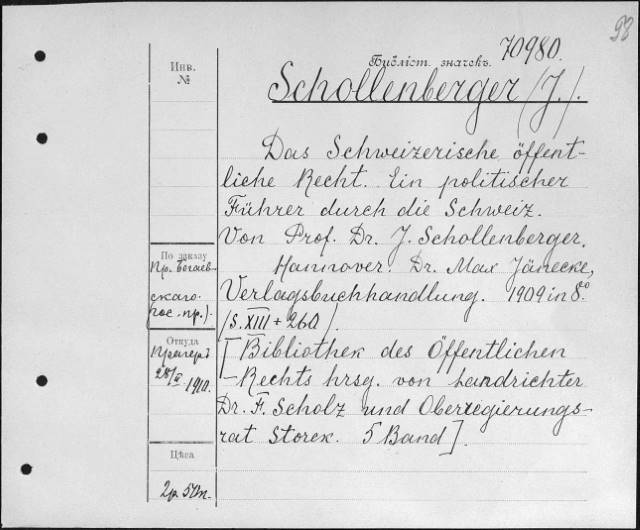 98
70980.
Инв.
№
Библіот. значекъ.
Schollenberger (J.).
Das Schweizerische öffent-
liche Recht. Ein politischer
Führer durch die Schweiz.
Von Prof. Dr. J. Schollenberger.
По заказу
Пр. Богаев-
скаго.
гос. пр.).
Hannover. Dr. Max Jänecke,
Verlagsbuchhandlung. 1909 in 8.º
(S. XIII + 260).
Откуда
Прагеръ
1910.
[Bibliothek des Öffentlichen
Rechts hrsg. von Landrichter
Dr. F. Scholz und Oberregierungs-
rat Storck. 5 Band].
Цѣса
2р. 50к.